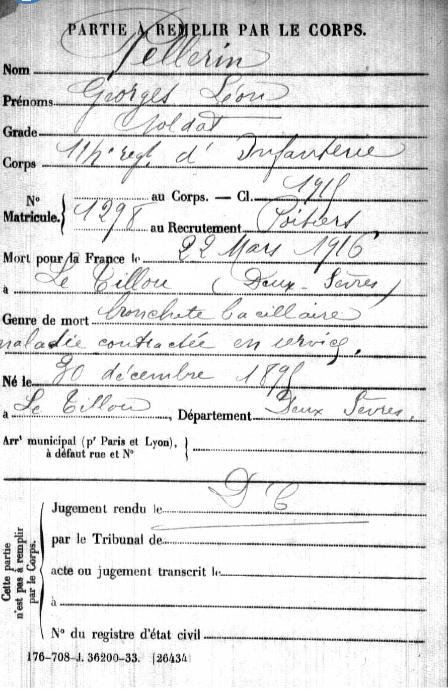 PARTIE À REMPLIR PAR LE CORPS.
Nom Pellerin
Prénoms Georges Léon
Grade Soldat
Corps 114e régt d'Infanterie
N° Matricule. { 1298 au Corps. — Cl. 1915
au Recrutement Poitiers
Mort pour la France le 22 Mars 1916
à Le Tillou (Deux-Sèvres)
Genre de mort bronchite bacillaire
maladie contractée en service.
Né le 30 décembre 1895
à Le Tillou, Département Deux Sèvres.
Arrt municipal (pr Paris et Lyon), à défaut rue et N° }
D C
Cette partie n'est pas à remplir par le Corps.
Jugement rendu le
par le Tribunal de
acte ou jugement transcrit le
à
N° du registre d'état civil
176-708-J. 36200-33. [26434